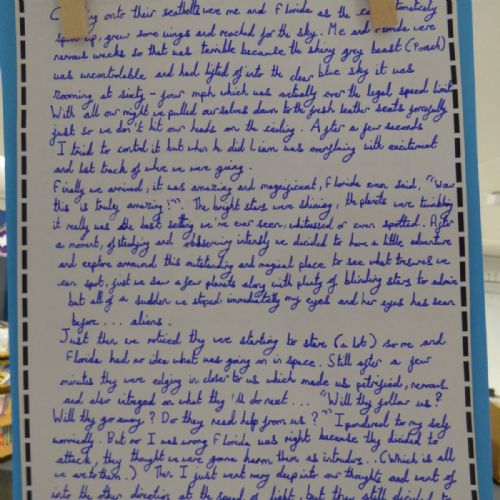 onto their seatbelts were me and Florida as the car automaticly
sped up, grew some wings and reached for the sky. Me and Florida were
nervous wecks so that was terrible because the shiny grey beast (Porach)
was uncontolable and had lifted of into the clear blue sky it was
zooming at sixty-four mph which was actually over the legal speed limit
With all our might we pulled ourselves down to the fresh leather seats forcefully
just so we don't hit our heads on the ceiling. After a few seconds
I tried to control it but when he did was everything with excitement
and lost track of where we were going.
Finally we arrived, it was amazing and magnificent, Florida even said, "Wow
this is truly amazing!". The bright stars were shining, the planets were twinkling
it really was the best setting we've ever seen, whitessed or even spotted. After
a moment, of studying and observing intensly we decided to have a little adventure
and explore around this outstanding and magical place to see what tresures we
can spot, just we saw a few planets along with plenty of blinding stars to admire
but all of a sudden we stoped immediatly my eyes and her eyes has seen
before.... aliens.
Just then we noticed thy were starting to stare (a lot) so me and
Florida had no idea what was going on in space. Still after a few
minutes they were edging in closer to us which made us petrified, nervous
and also intreged on what they'll do next.... "Will they follow us?
Will thy go away? Do they need help from us?" I pondered to my self
worriedly. But no I was wrong Florida was right because they dicided to
attack, they thought we were gonna harm them as intruders.. (Which is all
we are to them.) Then I just went deep into our thoughts and went of
into the other direction at the speed of light, but they still